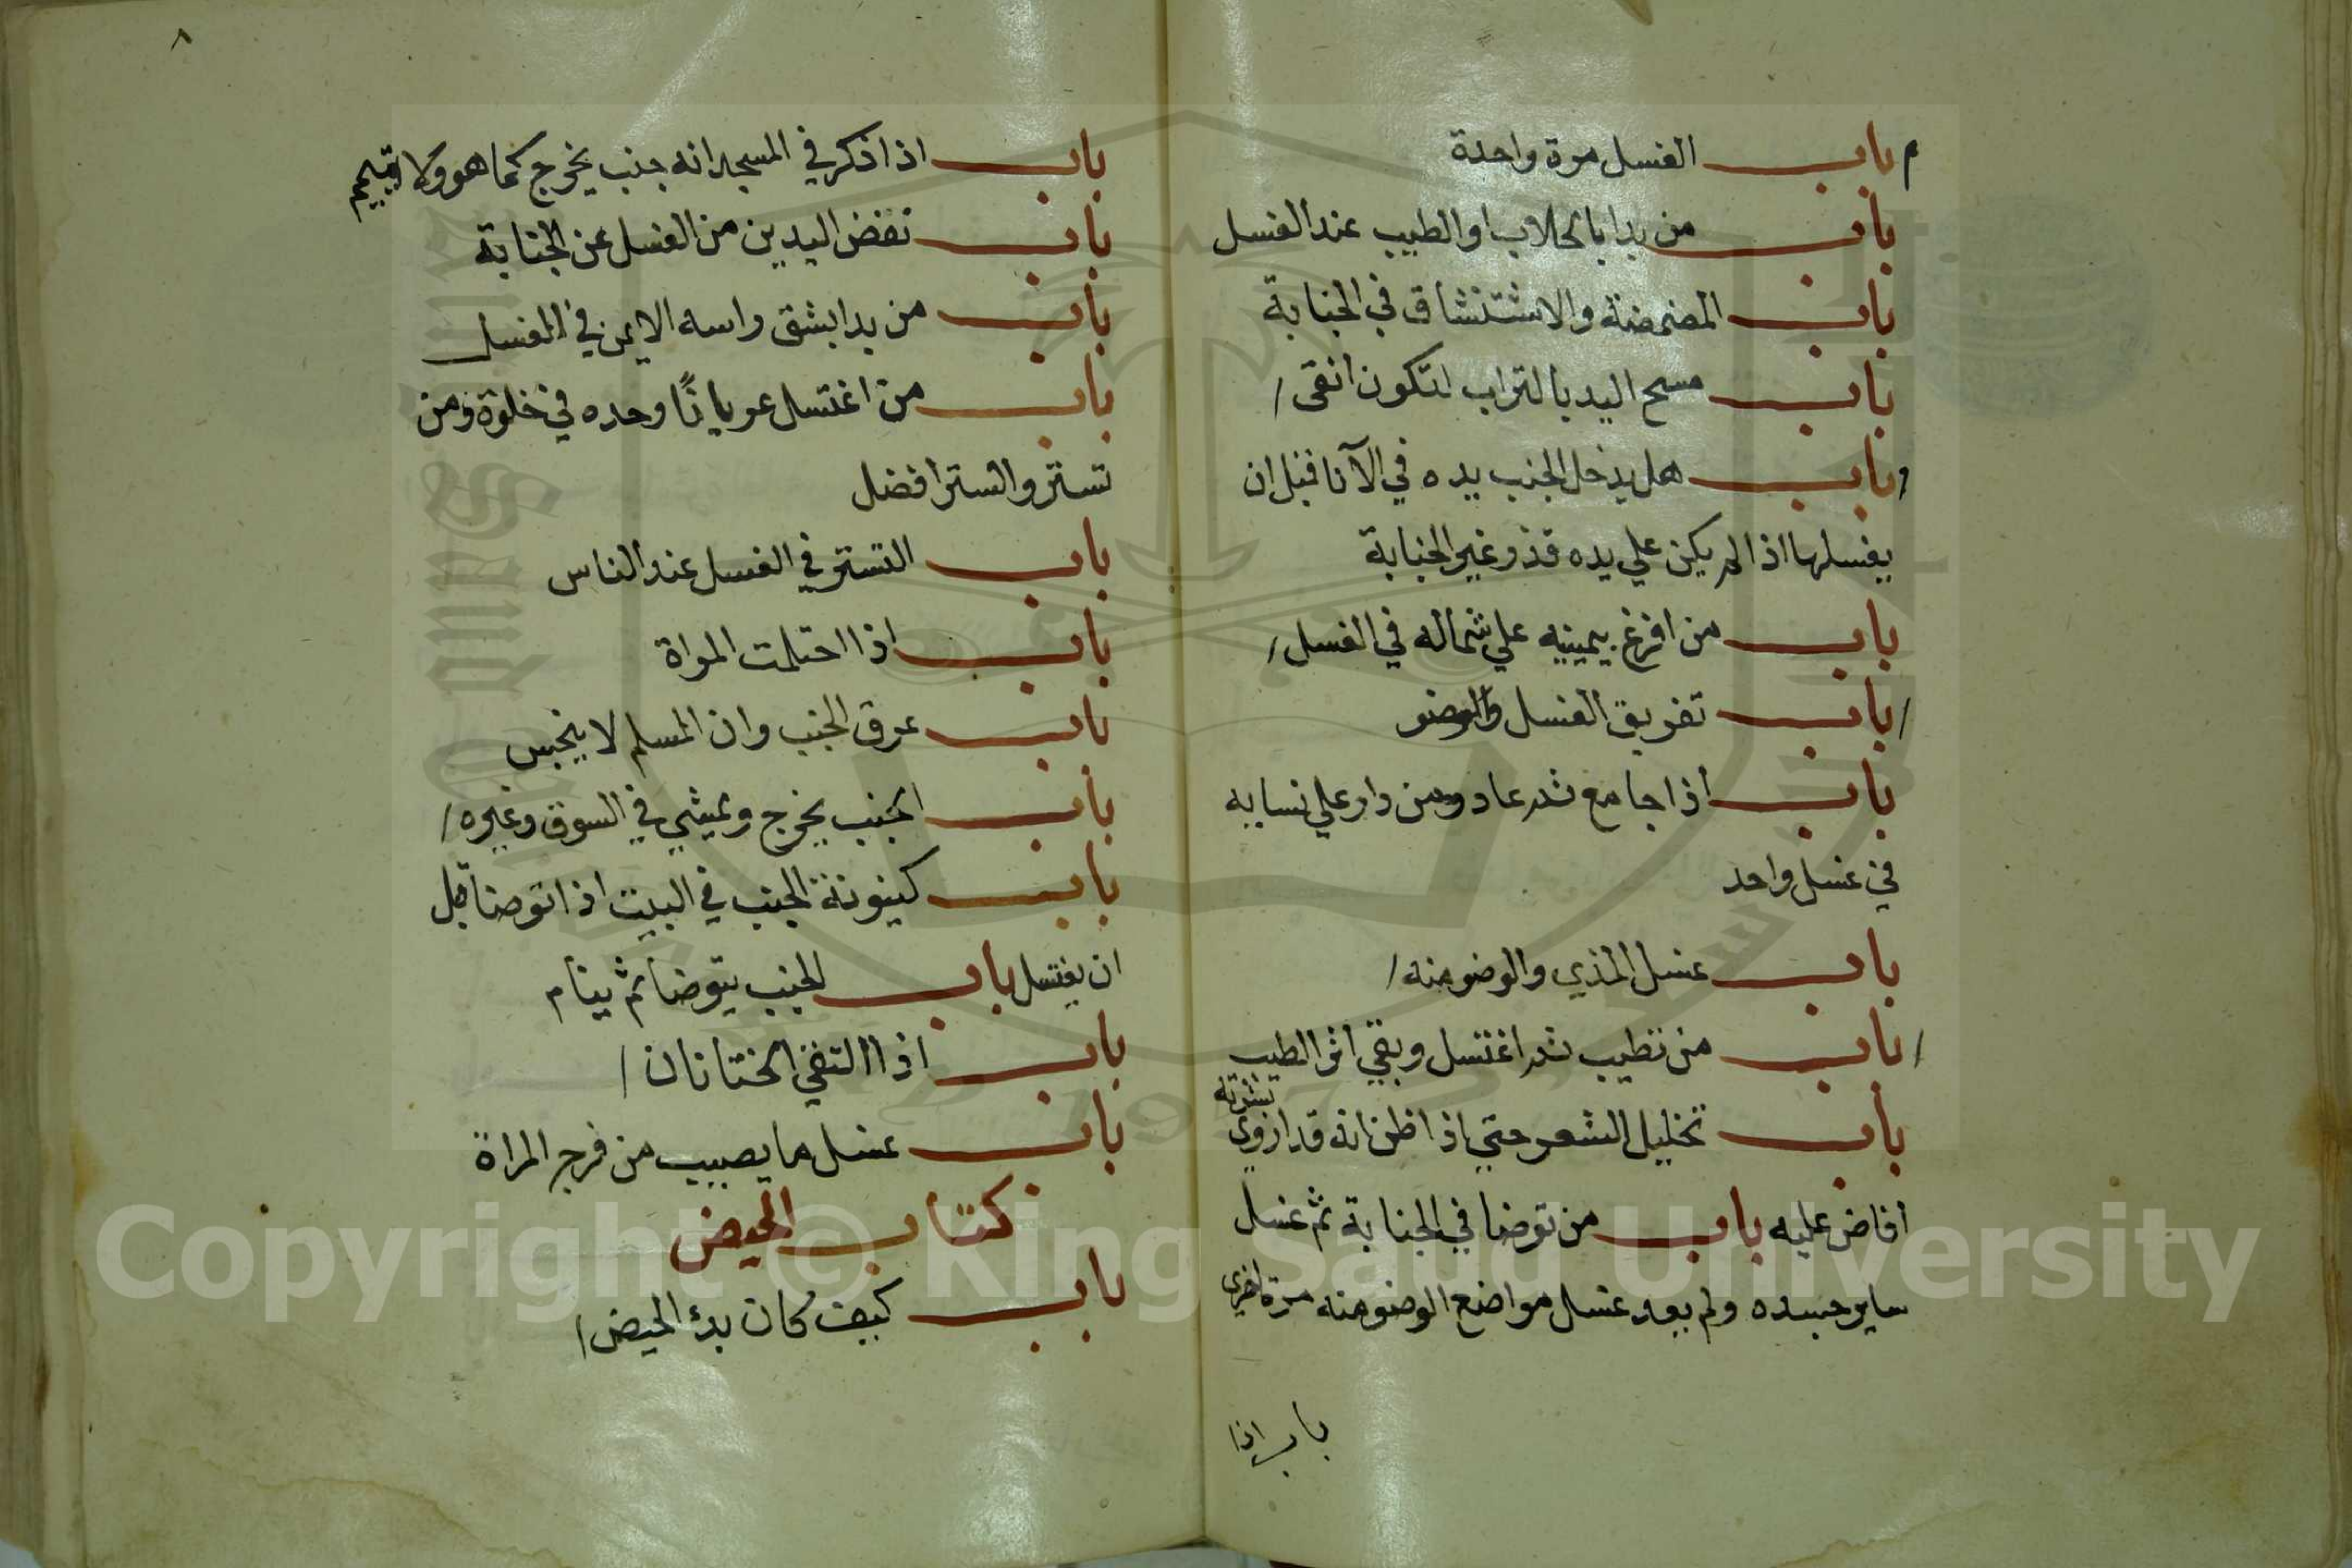 باب الغسل مرة واحدة
باب من بدا بالحلاب او الطيب عند الغسل
باب المضمضة والاستنشاق في الجنابة
باب مسح اليد بالتراب لتكون انقى
باب هل يدخل الجنب يده في الآنا قبل ان
يغسلها اذا لم يكن علي يده قذر غير الجنابة
باب من افرغ بيمينه علي شماله في الغسل
باب تفريق الغسل والوضو
باب اذا جامع ثم عاد ومن دار علي نسايه
في غسل واحد
باب غسل المذي والوضو منه
باب من تطيب ثم اغتسل وبقي اثر الطيب
باب تخليل الشعر حتي اذا ظن انه قد اروي بشرته
افاض عليه باب من توضا في الجنابة ثم غسل
ساير جسده ولم يعد غسل مواضع الوضو منه مرة اخري
باب اذا
٨
باب اذا ذكر في المسجد انه جنب يخرج كما هو ولا يتيمم
باب نفض اليدين من الغسل عن الجنابة
باب من بدا بشق راسه الايمن في الغسل
باب من اغتسل عريانًا وحده في خلوة ومن
تستر والستر افضل
باب التستر في الغسل عند الناس
باب اذا احتلمت المراة
باب عرق الجنب وان المسلم لا ينجس
باب الجنب يخرج ويمشي في السوق وغيره
باب كينونة الجنب في البيت اذا توضا قبل
ان يغتسل باب الجنب يتوضا ثم ينام
باب اذا التقي الختانان
باب غسل ما يصيب من فرج المراة
كتاب الحيض
باب كيف كان بدء الحيض
Copyright © King Saud University